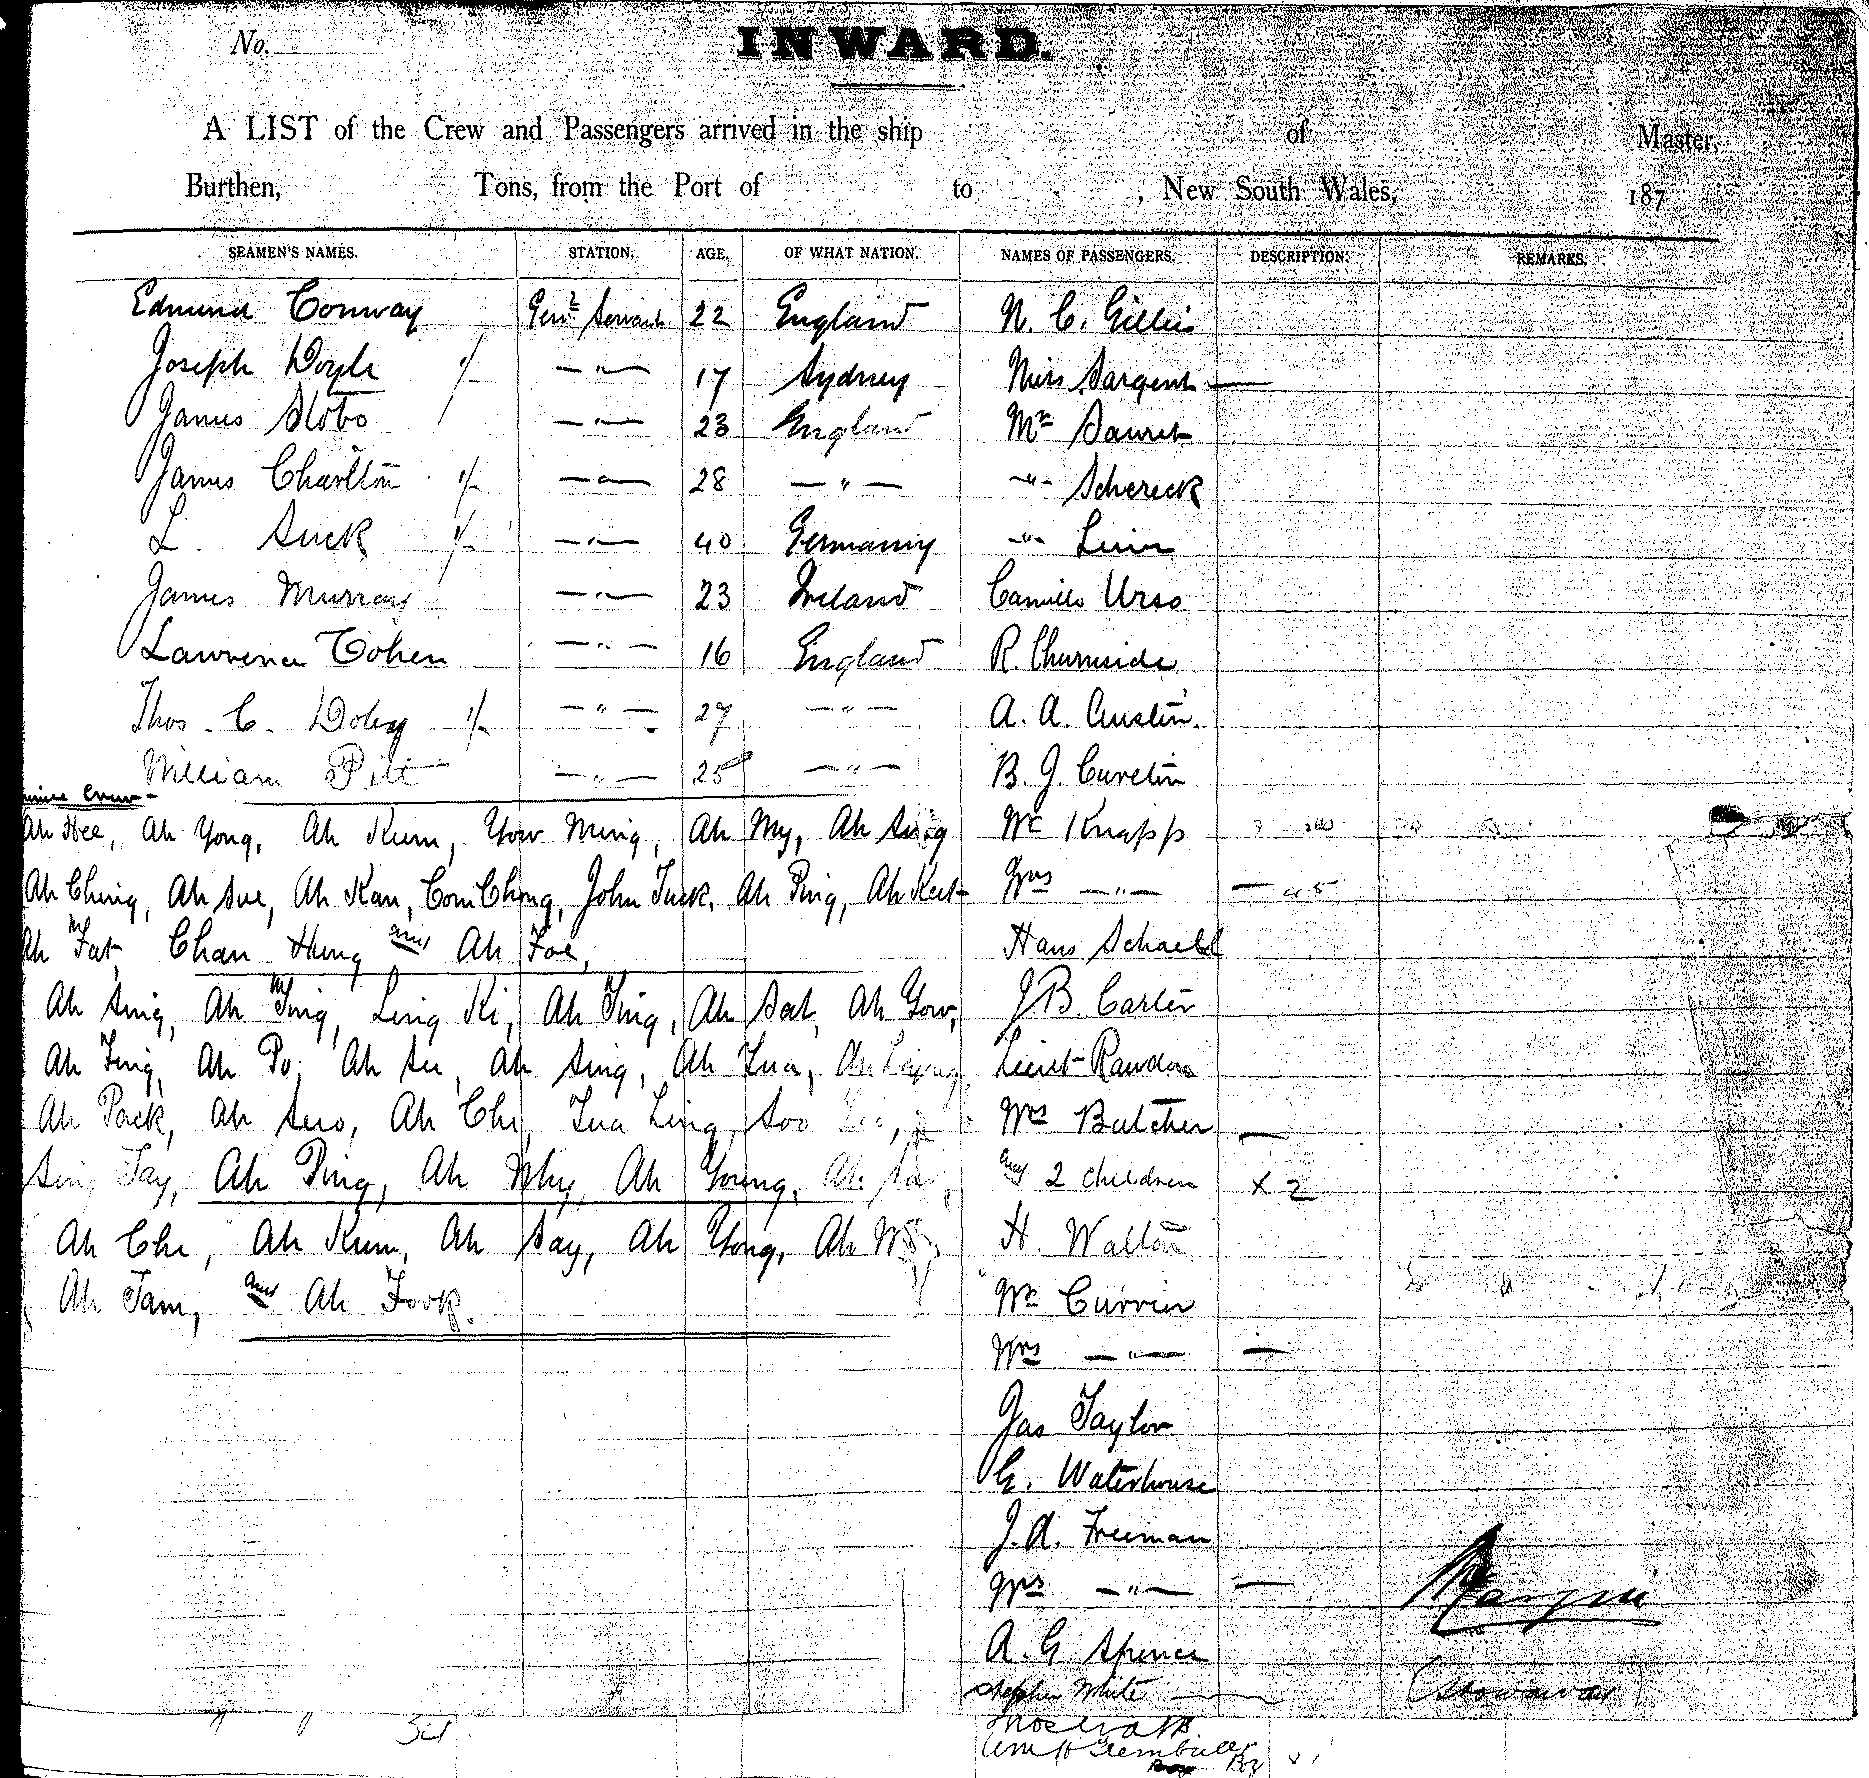 No.
INWARD.
A LIST of the Crew and Passengers arrived in the ship of Master,
Burthen, Tons, from the Port of to , New South Wales, 187
SEAMEN'S NAMES. STATION. AGE. OF WHAT NATION. NAMES OF PASSENGERS. DESCRIPTION. REMARKS.
Edmund Conway Genl Servant 22 England N. C. Gillis
Joseph Doyle —"— 17 Sydney Miss Sargent —
James Slobo —"— 23 England Mr Sauret
James Charlton —"— 28 —"— —"— Schereck
L. Suck —"— 40 Germany —"—
James Murray —"— 23 Ireland Camilla Urso
Lawrence Cohen —"— 16 England R. Churnside
Thos. C. —"— 27 —"— A. A. Austin.
William Pitt —"— 25 —"— B. J. Curetin
Crew
Ah Hee, Ah Yong, Ah Kum, Yow Ming, Ah My, Ah Sing Mr Knapp
Ah Ching, Ah Sue, Ah Kan, Com Chong, John Tuck, Ah Ping, Ah Kut Mrs —"— —
Ah Fat, Chan Hung and Ah Foe, Hans Schaebl
Ah Sing, Ah Ting, Ling Ki, Ah Ting, Ah Sat, Ah Yow, J B. Carter
Ah Ting, Ah Po, Ah Su, Ah Sing, Ah Lieut Rawdon
Ah Pack, Ah Suo, Ah Che, Ling, Soo Mrs Butcher —
Sing Tay, Ah Ping, Ah Why, Ah Young, Ah and 2 children x 2
Ah Che, Ah Kum, Ah Say, Ah Yong, Ah H. Walton
Ah Tam, and Ah Fook. Mr Currin
Mrs —"— —
Jas Taylor
G. Waterhouse
J. A. Freeman
Mrs —"— —
A. G Spence
Stephen White — Stowaway
Boy